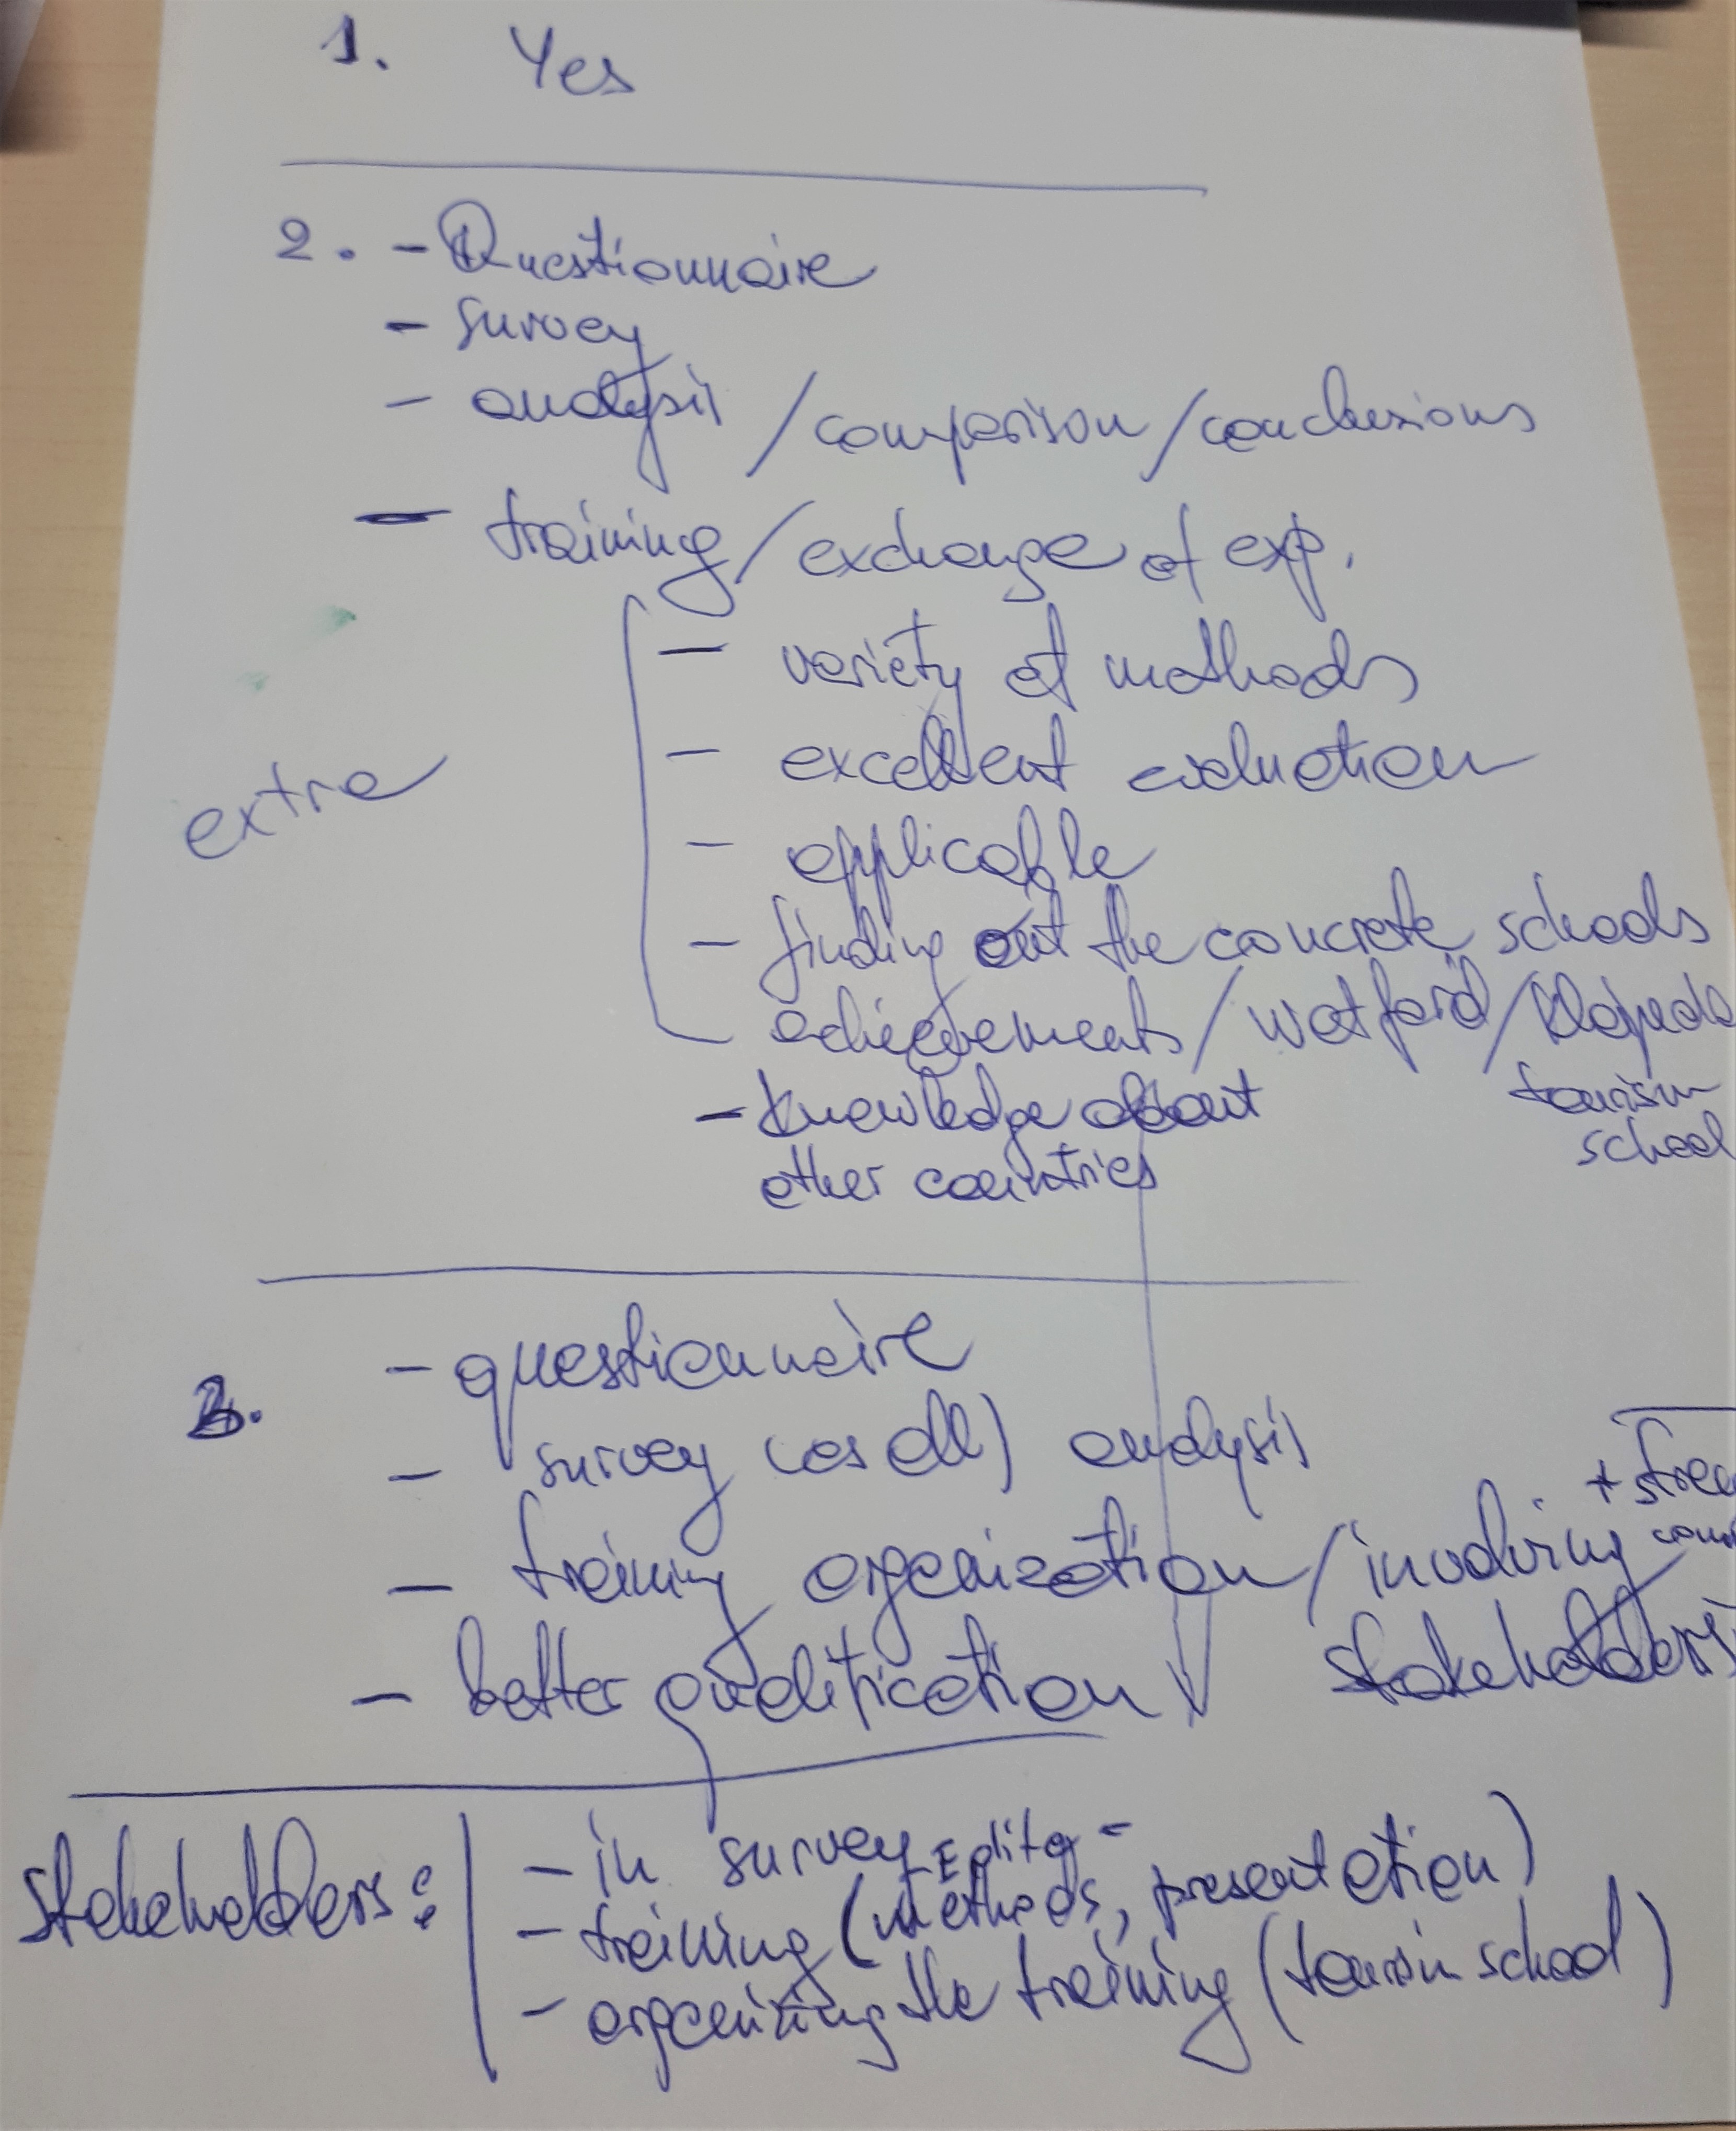 1. Yes
2. - Questionnaire
- survey
- analysis / comparison / conclusions
- training / exchange of exp.
extra
- variety of methods
- excellent evaluation
- applicable
- finding out the concrete schools
achievements / Watford /
tourism
school
- knowledge about
other countries
3.
- questionnaire
- survey (as all) analysis
- training organization / involving
stakeholders
- better qualification
stakeholders:
- in survey
- training (methods, presentation)
- organizing the training (tourism school)